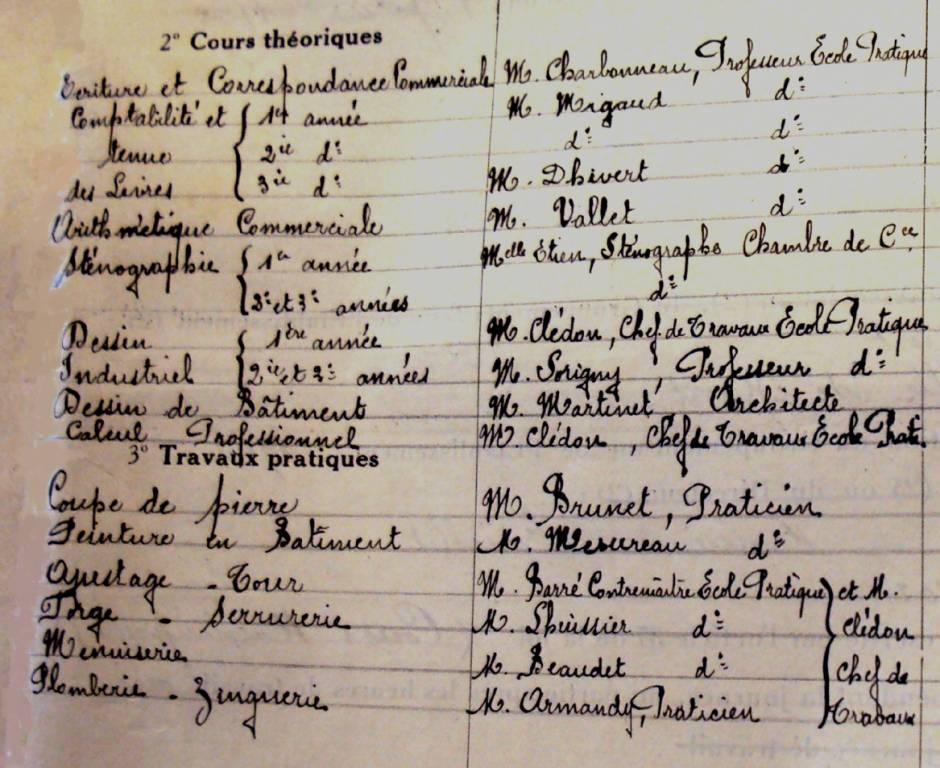 2° Cours théoriques
Ecriture et Correspondance Commerciale M. Charbonneau, Professeur Ecole Pratique
Comptabilité et 1re année M. Migaud d°
tenue 2ie d° d° d°
des Livres 3ie d° M. Dhivert d°
Arithmétique Commerciale M. Vallet d°
Sténographie 1re année Melle Etien, Sténographe Chambre de Cce
2e et 3e années d°
Dessin 1ère année M. Clédon, Chef de Travaux Ecole Pratique
Industriel 2ie et 3e années M. Sorigny, Professeur d°
Dessin de Bâtiment M. Martinet Architecte
Calcul Professionnel M. Clédon, Chef de Travaux Ecole Prat.
3° Travaux pratiques
Coupe de pierre M. Brunet, Praticien
Peinture en Batiment M. Mesureau d°
Ajustage - Tour M. Barré Contremaître Ecole Pratique et M.
Forge - Serrurerie M. Lhuissier d° Clédon
Menuiserie M. Beaudet d° Chef de
Plomberie - Zinguerie M. Armandy, Praticien Travaux